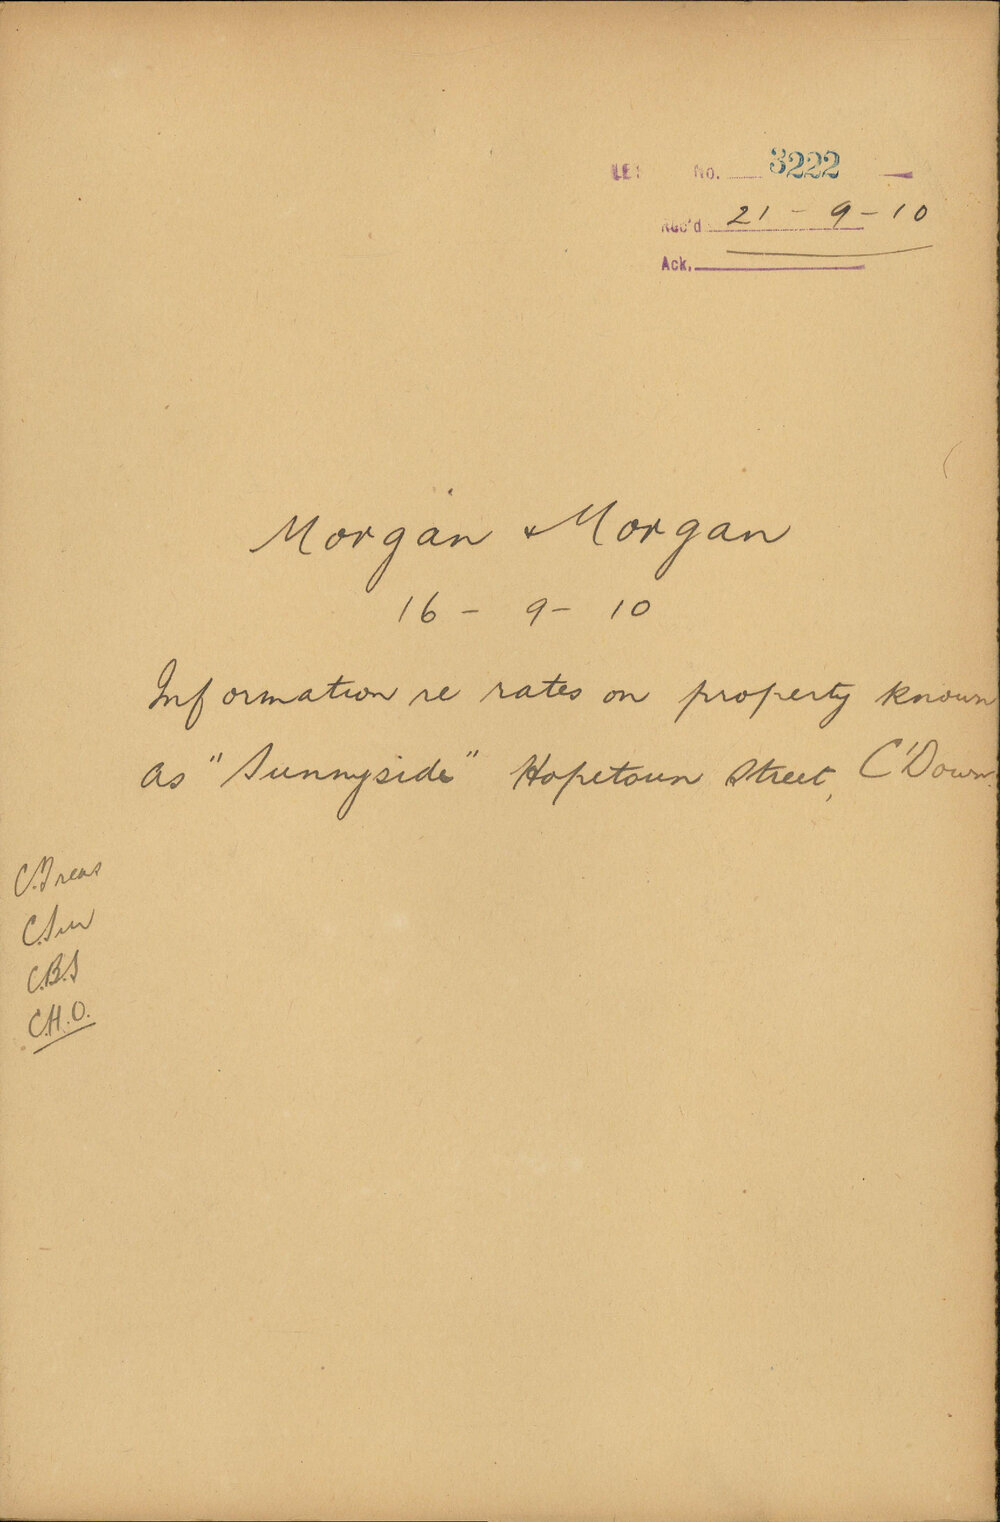 No. 3222
Rec'd 21 - 9 - 10
Ack.
Morgan & Morgan
16 - 9 - 10
Information re rates on property known
as "Sunnyside" Hopetoun Street, C'Down
C.Treas
C.Sur
C.B.S
C.H.O.